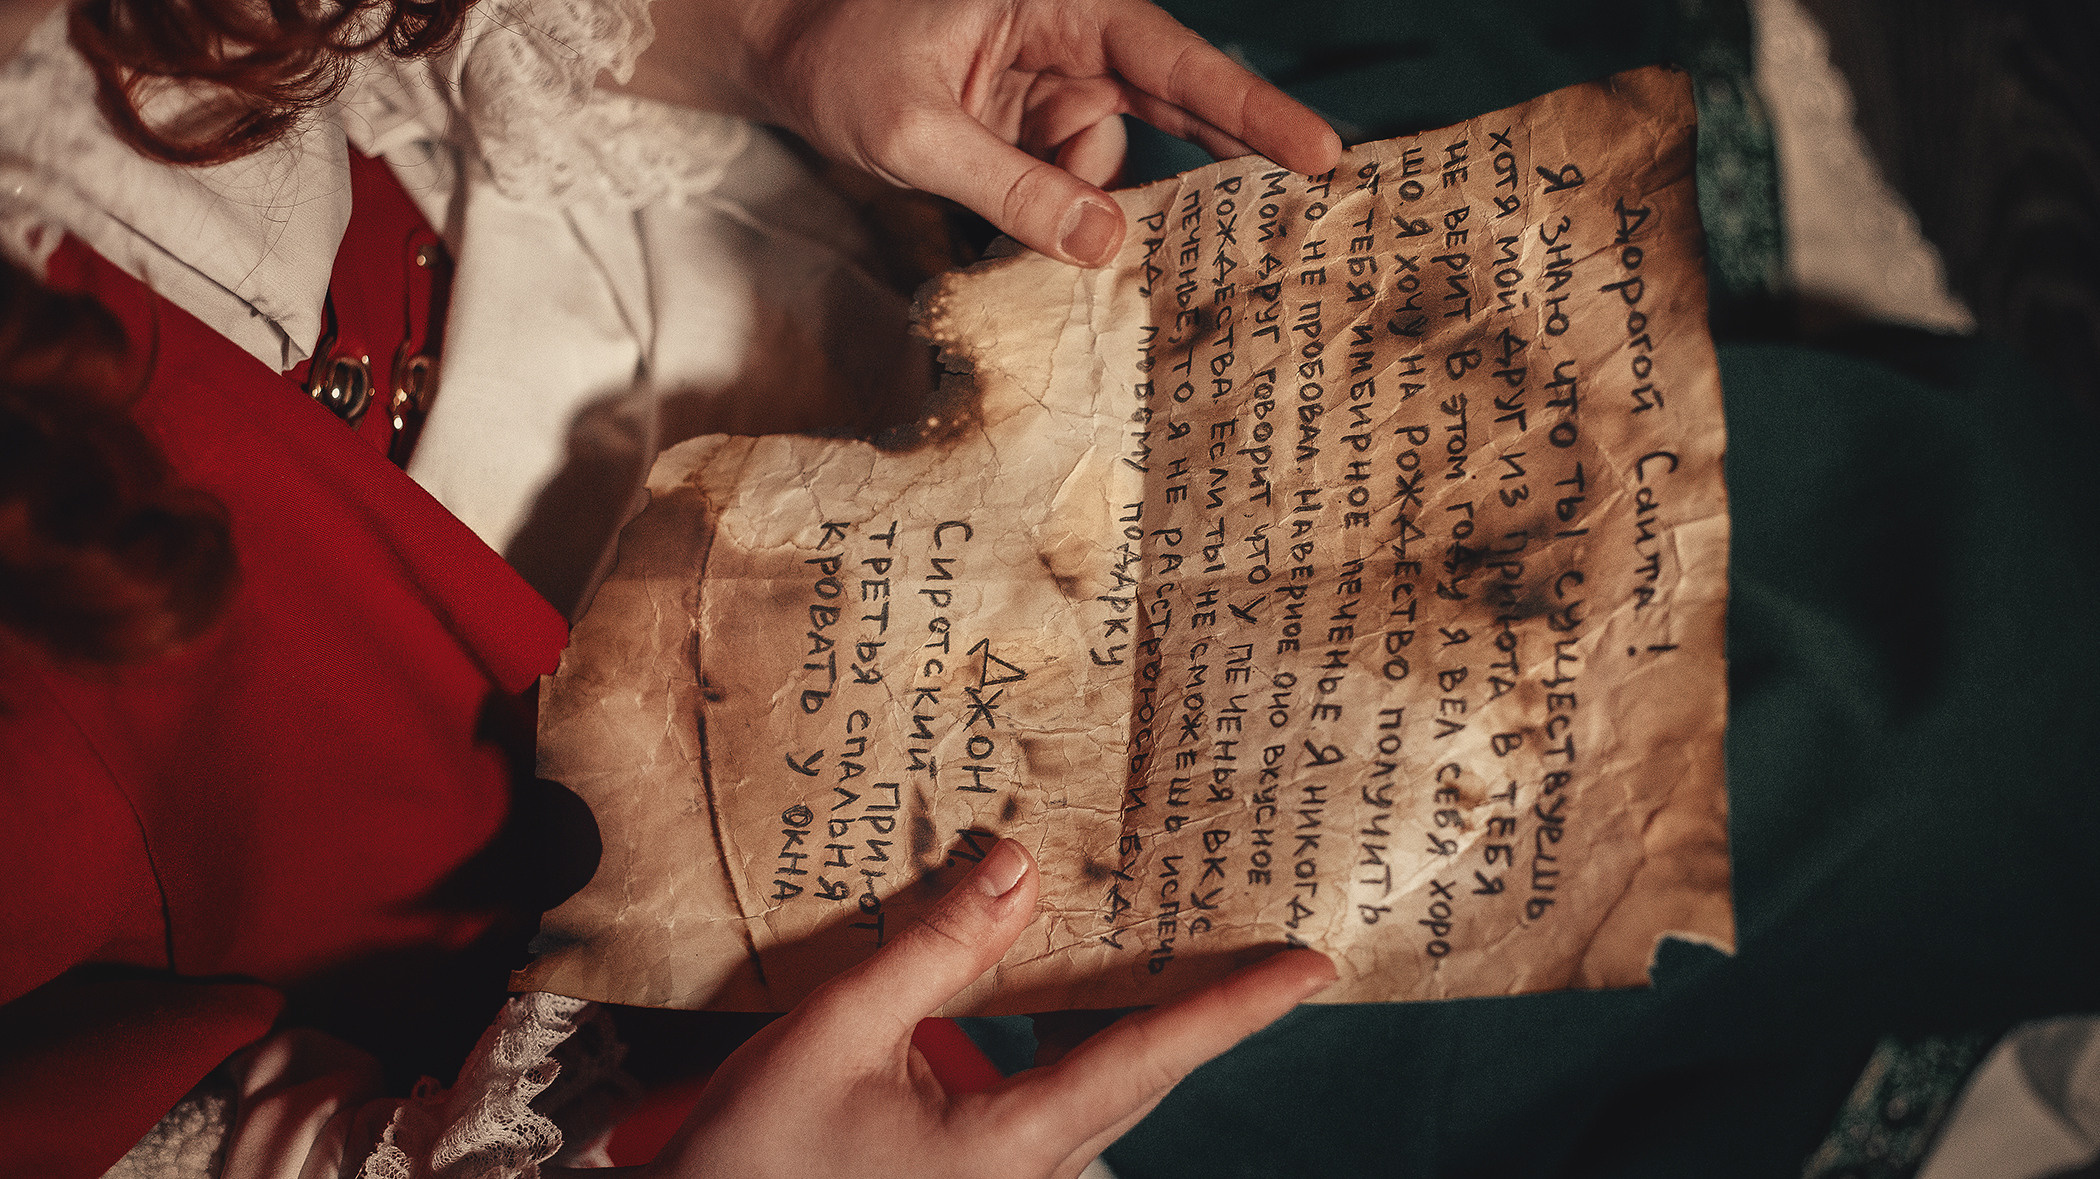 Дорогой Санта!
Я знаю, что ты существуешь,
хотя мой друг из приюта в тебя
не верит. В этом году я вел себя хоро
шо. Я хочу на рождество получить
от тебя имбирное печенье. Я никогда
его не пробовал. Наверное оно вкусное.
Мой друг говорит, что у печенья вкус
рождества. Если ты не сможешь испечь
печенье, то я не расстроюсь и буду
рад, любому подарку
Джон И.
Сиротский Приют
третья спальня
кровать у окна